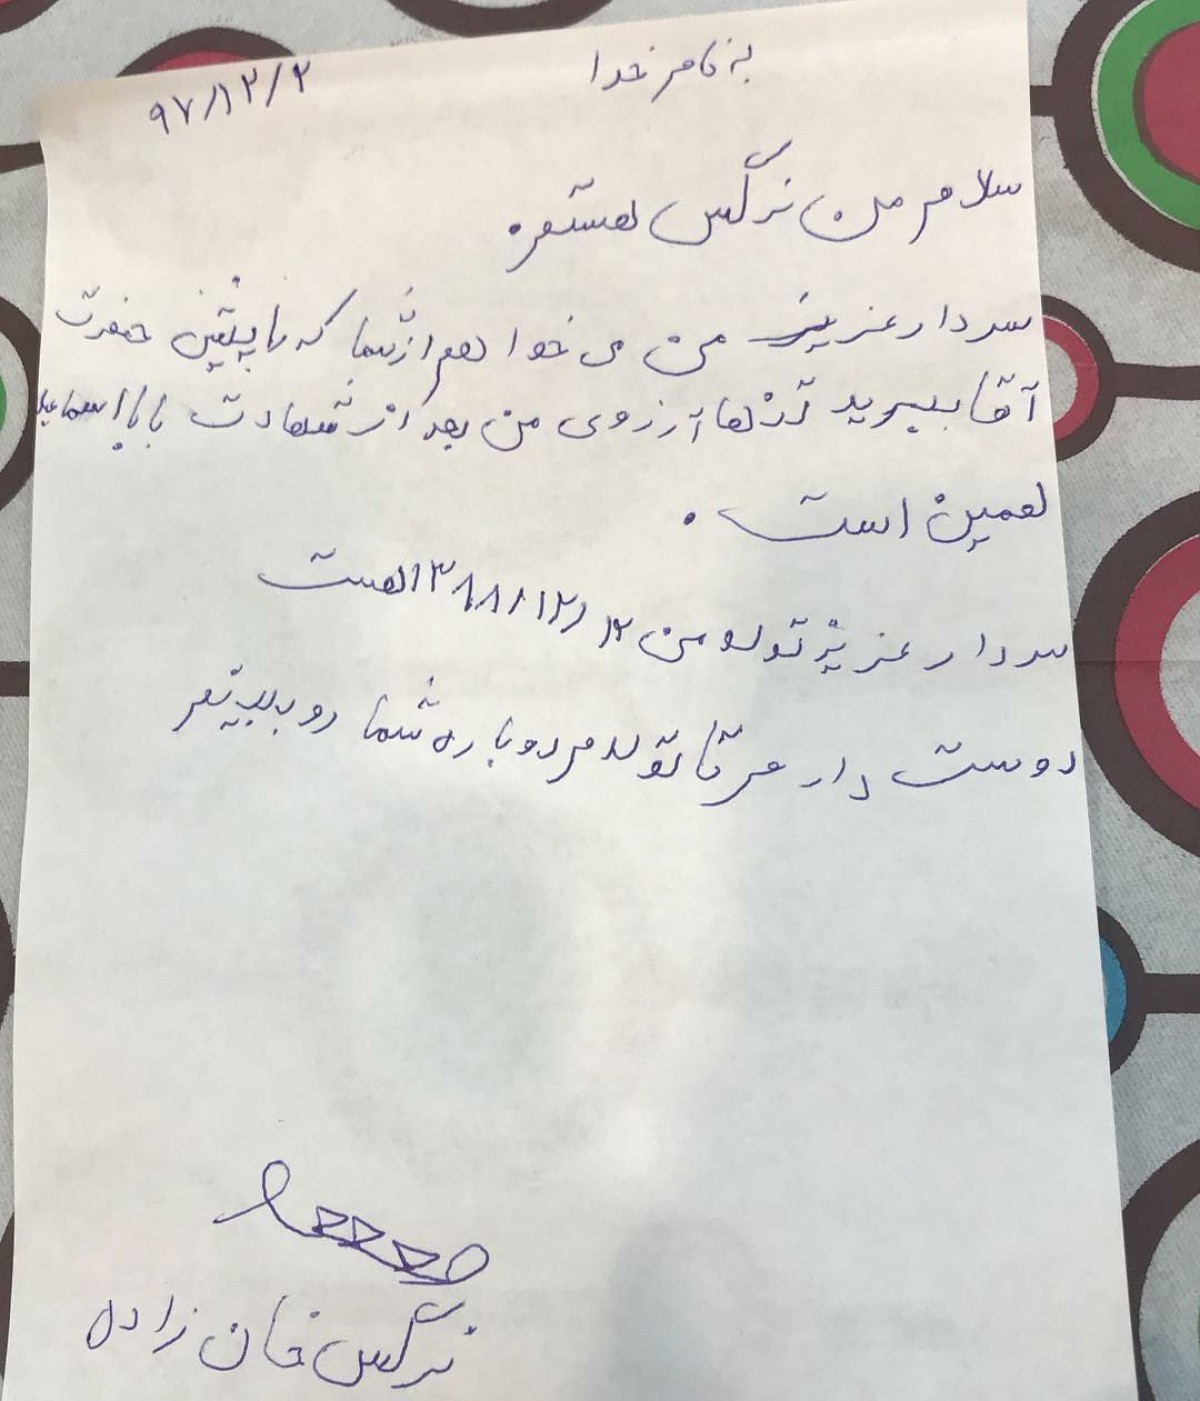 به نام خدا
۹۷/۱۲/۲
سلام من نرگس هستم.
سردار عزیز من می خواهم از شما که ما پیش حضرت
آقا ببرید تنها آرزوی من بعد از شهادت بابا اسماعیل
همین است.
سردار عزیز تولد من ۱۳۸۸/۱۲/۱۲ هست
دوست دارم تا تولدم دوباره شما رو ببینم
نرگس خان زاده